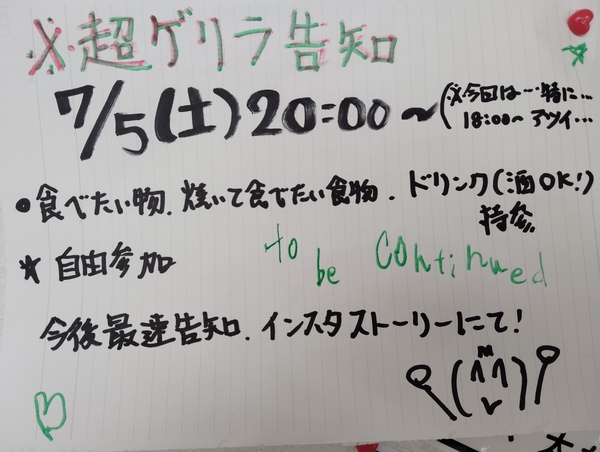 ※超ゲリラ告知
7/5(土)20:00～
(※今回は…一緒に…
18:00～アツイ…
●食べたい物、焼いて食べたい食物、ドリンク(酒OK!)
持参
★自由参加
to be continued
今後最速告知、インスタストーリーにて!